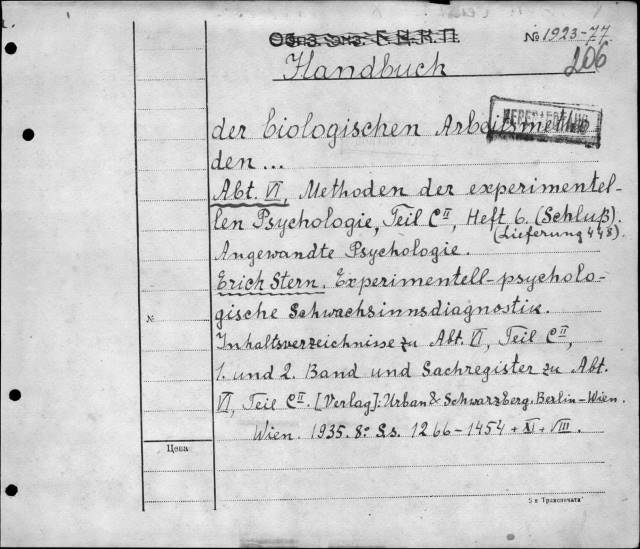 № 1923-77
206
Handbuch
der biologischen Arbeitsmetho
den ...
Abt. VI, Methoden der experimentel-
len Psychologie, Teil C II, Heft 6. (Schluß).
(Lieferung 448).
Angewandte Psychologie.
Erich Stern. Experimentell-psycholo-
gische Schwachsinnsdiagnostik.
№
Inhaltsverzeichnisse zu Abt. VI, Teil C II,
1. und 2. Band und Sachregister zu Abt.
VI, Teil C II. [Verlag]: Urban & Schwarzberg. Berlin-Wien.
Wien. 1935. 8º Ss. 1266-1454 + XI + VIII.
Цена
5 я Транспечати